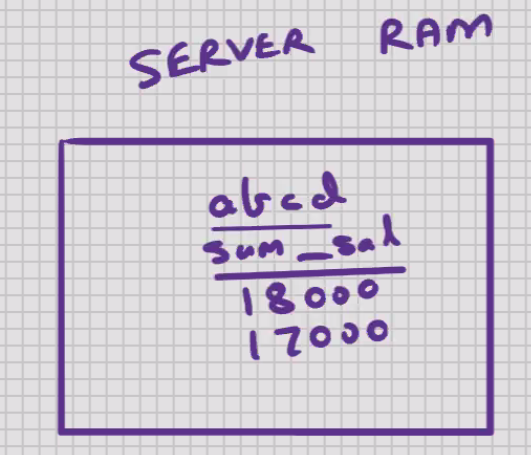 SERVER RAM
abcd
sum_sal
18000
17000